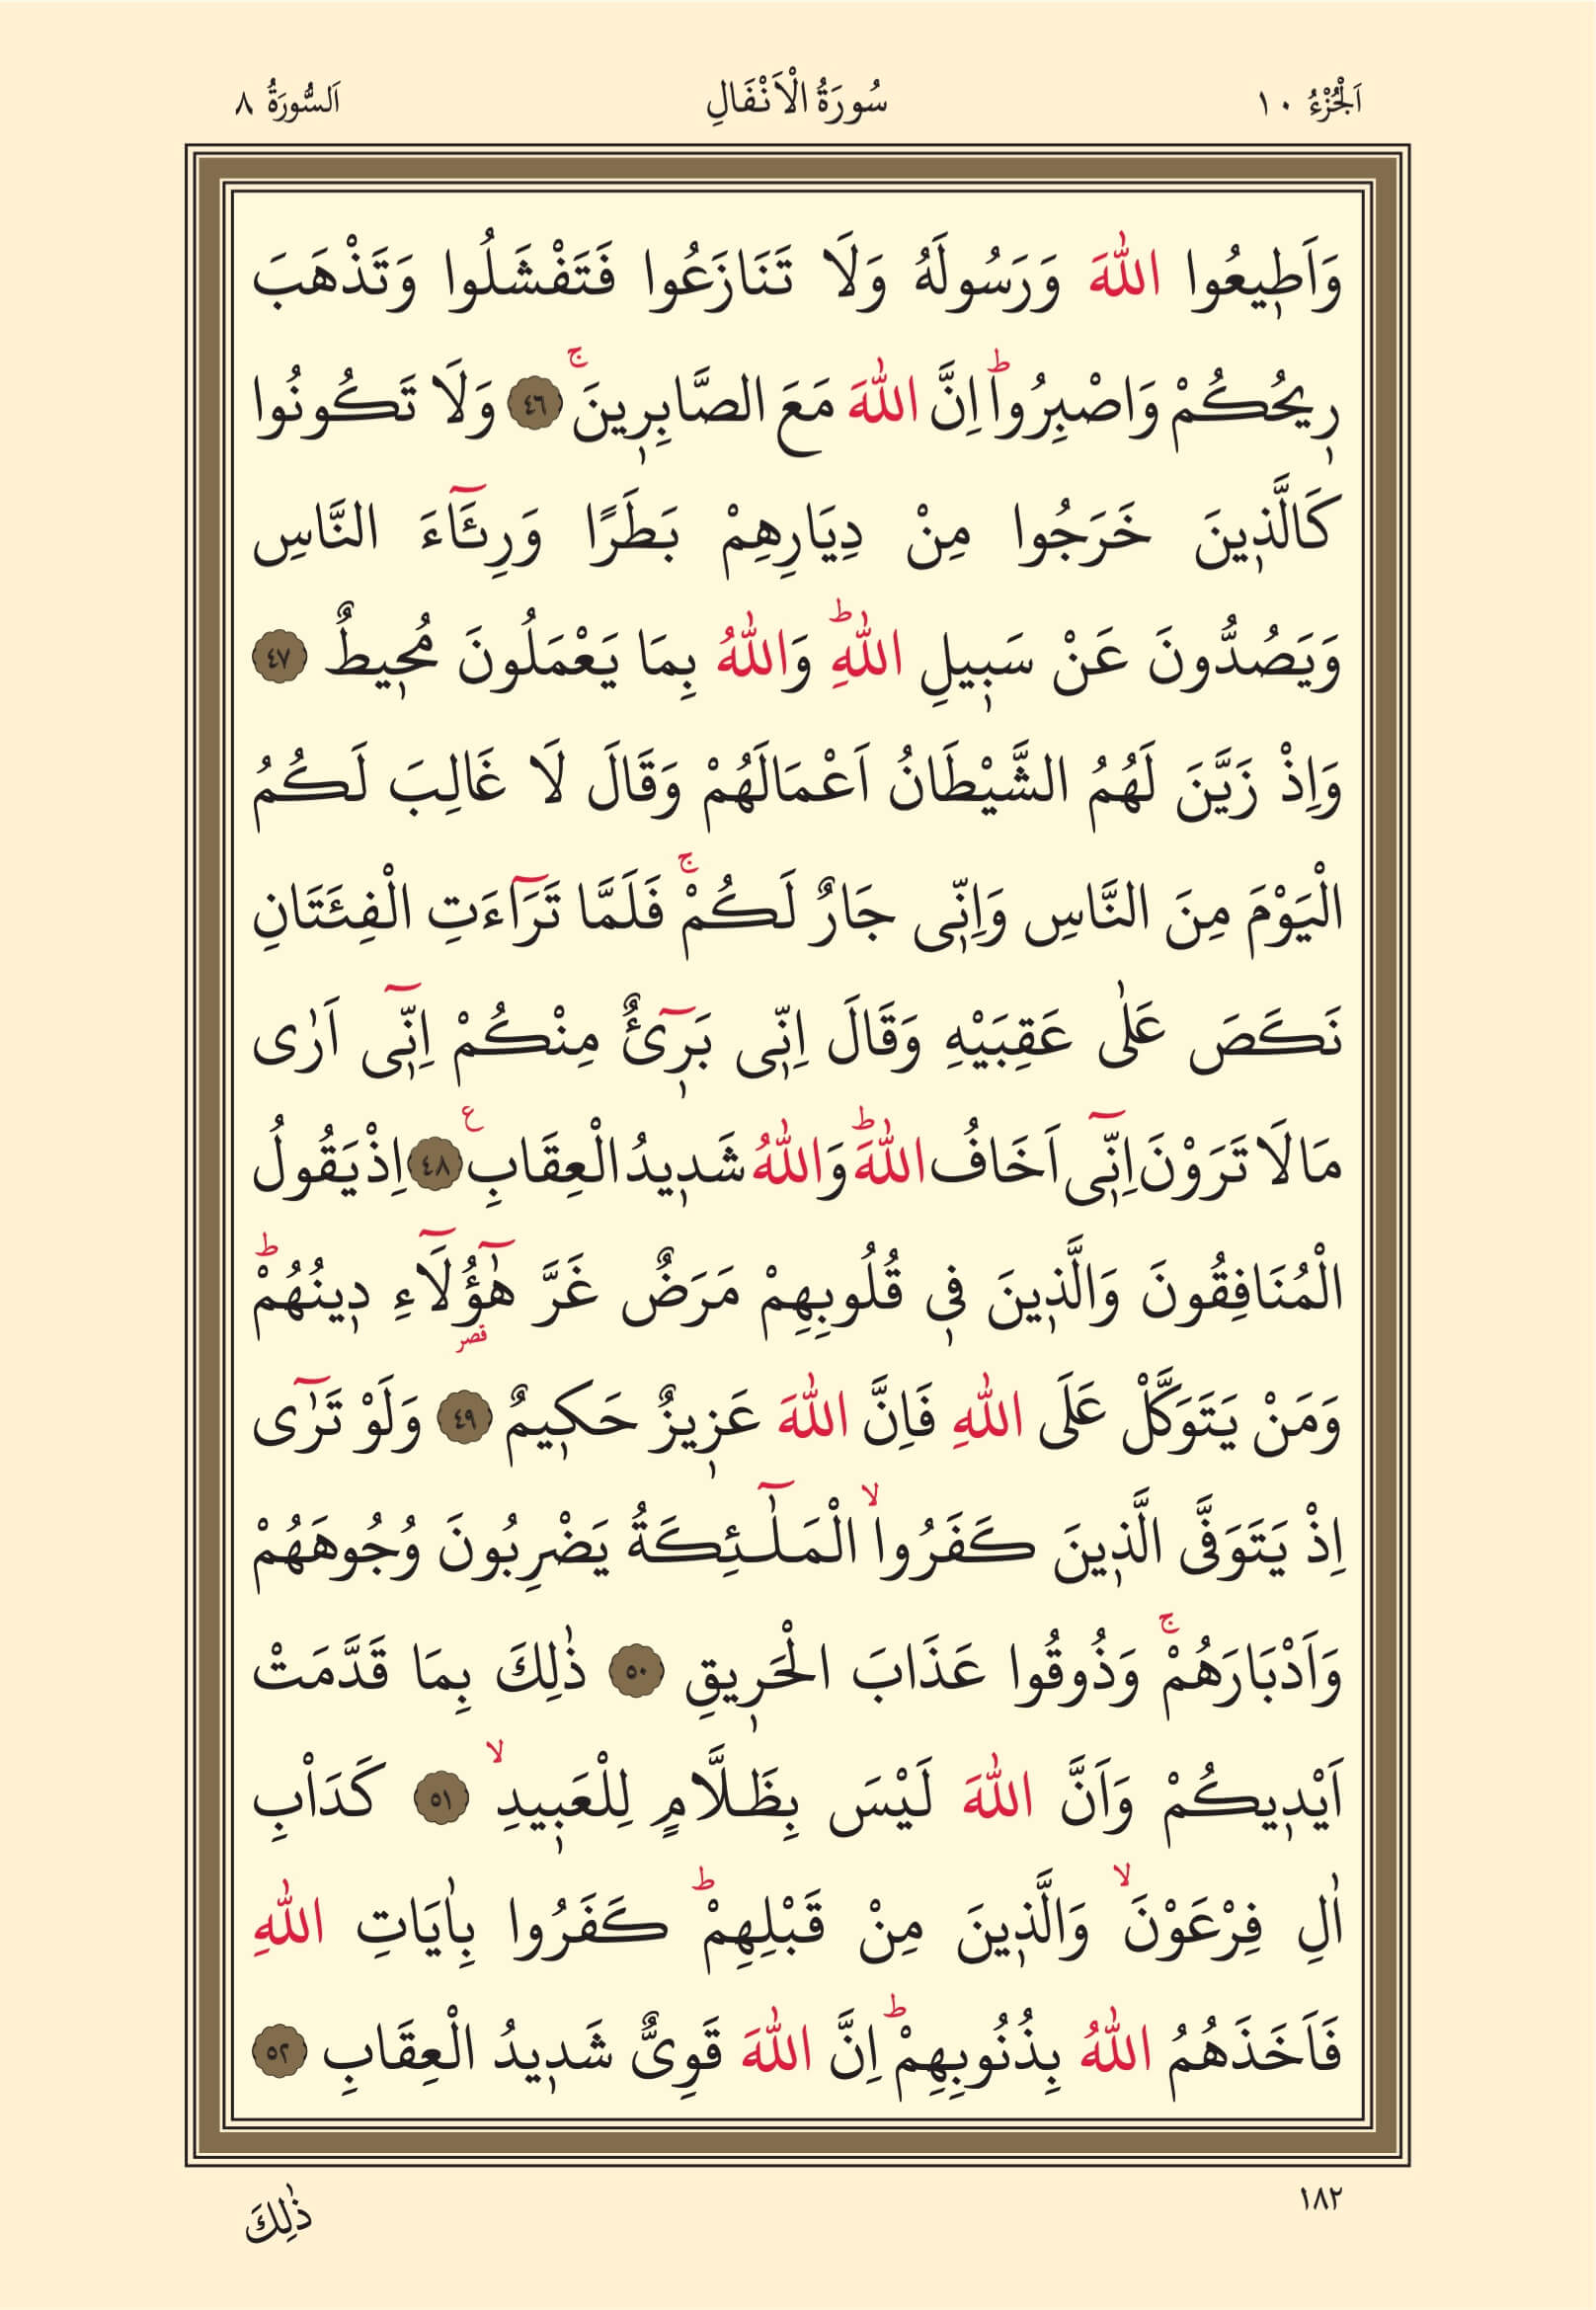 اَلْجُزْءُ ١٠ سُورَةُ الْاَنْفَالِ اَلسُّورَةُ ٨
وَاَطٖيعُوا اللّٰهَ وَرَسُولَهُ وَلَا تَنَازَعُوا فَتَفْشَلُوا وَتَذْهَبَ
رٖيحُكُمْ وَاصْبِرُواؕ اِنَّ اللّٰهَ مَعَ الصَّابِرٖينَۚ ﴿٤٦﴾ وَلَا تَكُونُوا
كَالَّذٖينَ خَرَجُوا مِنْ دِيَارِهِمْ بَطَرًا وَرِئَٓاءَ النَّاسِ
وَيَصُدُّونَ عَنْ سَبٖيلِ اللّٰهِؕ وَاللّٰهُ بِمَا يَعْمَلُونَ مُحٖيطٌ ﴿٤٧﴾
وَاِذْ زَيَّنَ لَهُمُ الشَّيْطَانُ اَعْمَالَهُمْ وَقَالَ لَا غَالِبَ لَكُمُ
الْيَوْمَ مِنَ النَّاسِ وَاِنّٖى جَارٌ لَكُمْۚ فَلَمَّا تَرَٓاءَتِ الْفِئَتَانِ
نَكَصَ عَلٰى عَقِبَيْهِ وَقَالَ اِنّٖى بَرٖٓىءٌ مِنْكُمْ اِنّٖٓى اَرٰى
مَا لَا تَرَوْنَ اِنّٖٓى اَخَافُ اللّٰهَؕ وَاللّٰهُ شَدٖيدُ الْعِقَابِ ع ﴿٤٨﴾ اِذْ يَقُولُ
الْمُنَافِقُونَ وَالَّذٖينَ فٖى قُلُوبِهِمْ مَرَضٌ غَرَّ هٰٓؤُلَٓاءِ دٖينُهُمْؕ
قصر
وَمَنْ يَتَوَكَّلْ عَلَى اللّٰهِ فَاِنَّ اللّٰهَ عَزٖيزٌ حَكٖيمٌ ﴿٤٩﴾ وَلَوْ تَرٰٓى
اِذْ يَتَوَفَّى الَّذٖينَ كَفَرُواۙ الْمَلٰٓئِكَةُ يَضْرِبُونَ وُجُوهَهُمْ
وَاَدْبَارَهُمْۚ وَذُوقُوا عَذَابَ الْحَرٖيقِ ﴿٥٠﴾ ذٰلِكَ بِمَا قَدَّمَتْ
اَيْدٖيكُمْ وَاَنَّ اللّٰهَ لَيْسَ بِظَلَّامٍ لِلْعَبٖيدِۙ ﴿٥١﴾ كَدَاْبِ
اٰلِ فِرْعَوْنَۙ وَالَّذٖينَ مِنْ قَبْلِهِمْؕ كَفَرُوا بِاٰيَاتِ اللّٰهِ
فَاَخَذَهُمُ اللّٰهُ بِذُنُوبِهِمْؕ اِنَّ اللّٰهَ قَوِىٌّ شَدٖيدُ الْعِقَابِ ﴿٥٢﴾
١٨٢ ذٰلِكَ